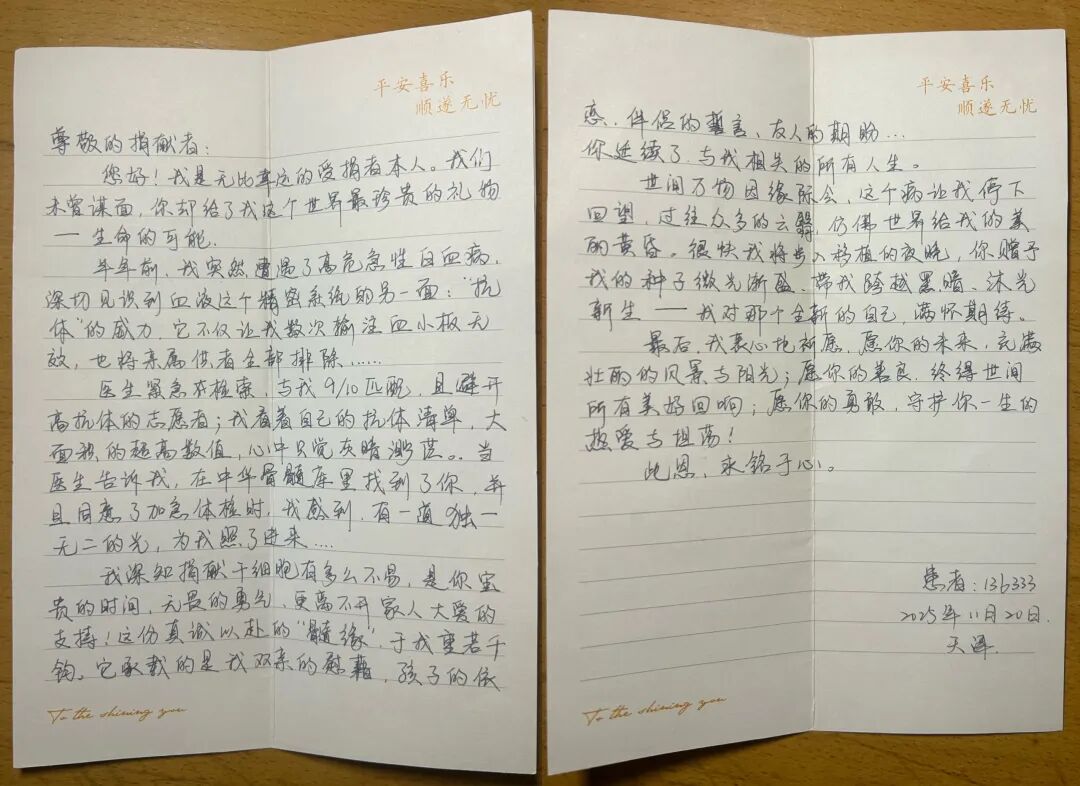 平安喜乐
顺遂无忧
尊敬的捐献者：
您好！我是无比幸运的受捐者本人。我们
未曾谋面，你却给了我这个世界最珍贵的礼物
—生命的可能.
半年前，我突然遭遇了高危急性白血病，
深切见识到血液这个精密系统的另一面：“抗
体”的威力.它不仅让我数次输注血小板无
效，也将亲属供者全部排除……
医生紧急检索，与我9/10匹配，且避开
高抗体的志愿者；我看着自己的抗体清单，大
面积的超高数值，心中只觉灰暗渺茫。当
医生告诉我，在中华骨髓库里找到了你，并
且同意了加急体检时，我感到，有一道独一
无二的光，为我照了进来....
我深知捐献干细胞有多么不易，是你宝
贵的时间，无畏的勇气，更离不开家人大爱的
支持！这份真诚以赴的“髓缘”，于我重若千
钧。它承载的是我双亲的慰藉，孩子的依
To the shining you
平安喜乐
顺遂无忧
恋、伴侣的誓言、友人的期盼...
你延续了，与我相关的所有人生。
世间万物因缘际会，这个病让我停下
回望，过往众多的云翳，仿佛世界给我的美
丽黄昏。很快我将步入移植的夜晚，你赠予
我的种子微光渐盈、带我跨越黑暗、沐光
新生——我对那个全新的自己，满怀期待。
最后，我衷心地祈愿，愿你的未来，充满
壮丽的风景与阳光；愿你的善良，终得世间
所有美好回响；愿你的勇敢，守护你一生的
热爱与坦荡！
此恩，永铭于心。
患者：136333
2025年11月20日.
天泽.
To the shining you